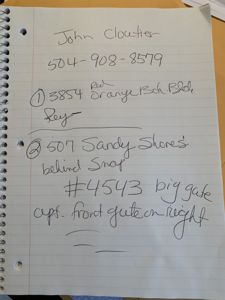 John Cloutier
504-908-8579
① 3854 Orange Bch Blvd.
Key
② 507 Sandy Shores
behind Snap
#4543 big gate
apt. front gate on right